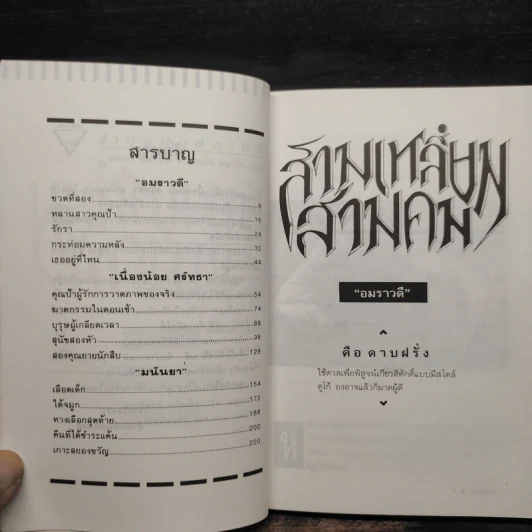 สารบาญ
"อมราวดี"
ขวดที่สอง 8
หลานสาวคุณป้า 16
รักรา 24
กระท่อมความหลัง 32
เธออยู่ที่ไหน 44
"เนื่องน้อย ศรัทธา"
คุณป้าผู้รักการวาดภาพของจริง 54
ฆาตกรรมในตอนเช้า 74
บุรุษผู้เกลียดเวลา 88
สุนัขสองหัว 98
สองคุณยายนักสืบ 128
"มนันยา"
เลือดเด็ก 154
ใต้จมูก 172
ทางเลือกสุดท้าย 188
คืนที่ได้ชำระแค้น 202
เกาะสยองขวัญ 220
สามเหลี่ยม
สามคม
"อมราวดี"
คือ ดาบฝรั่ง
ใช้ดวลเพื่อพิสูจน์เกียรติศักดิ์แบบมีสไตล์
ดูโก้ องอาจแล้วก็มาดผู้ดี